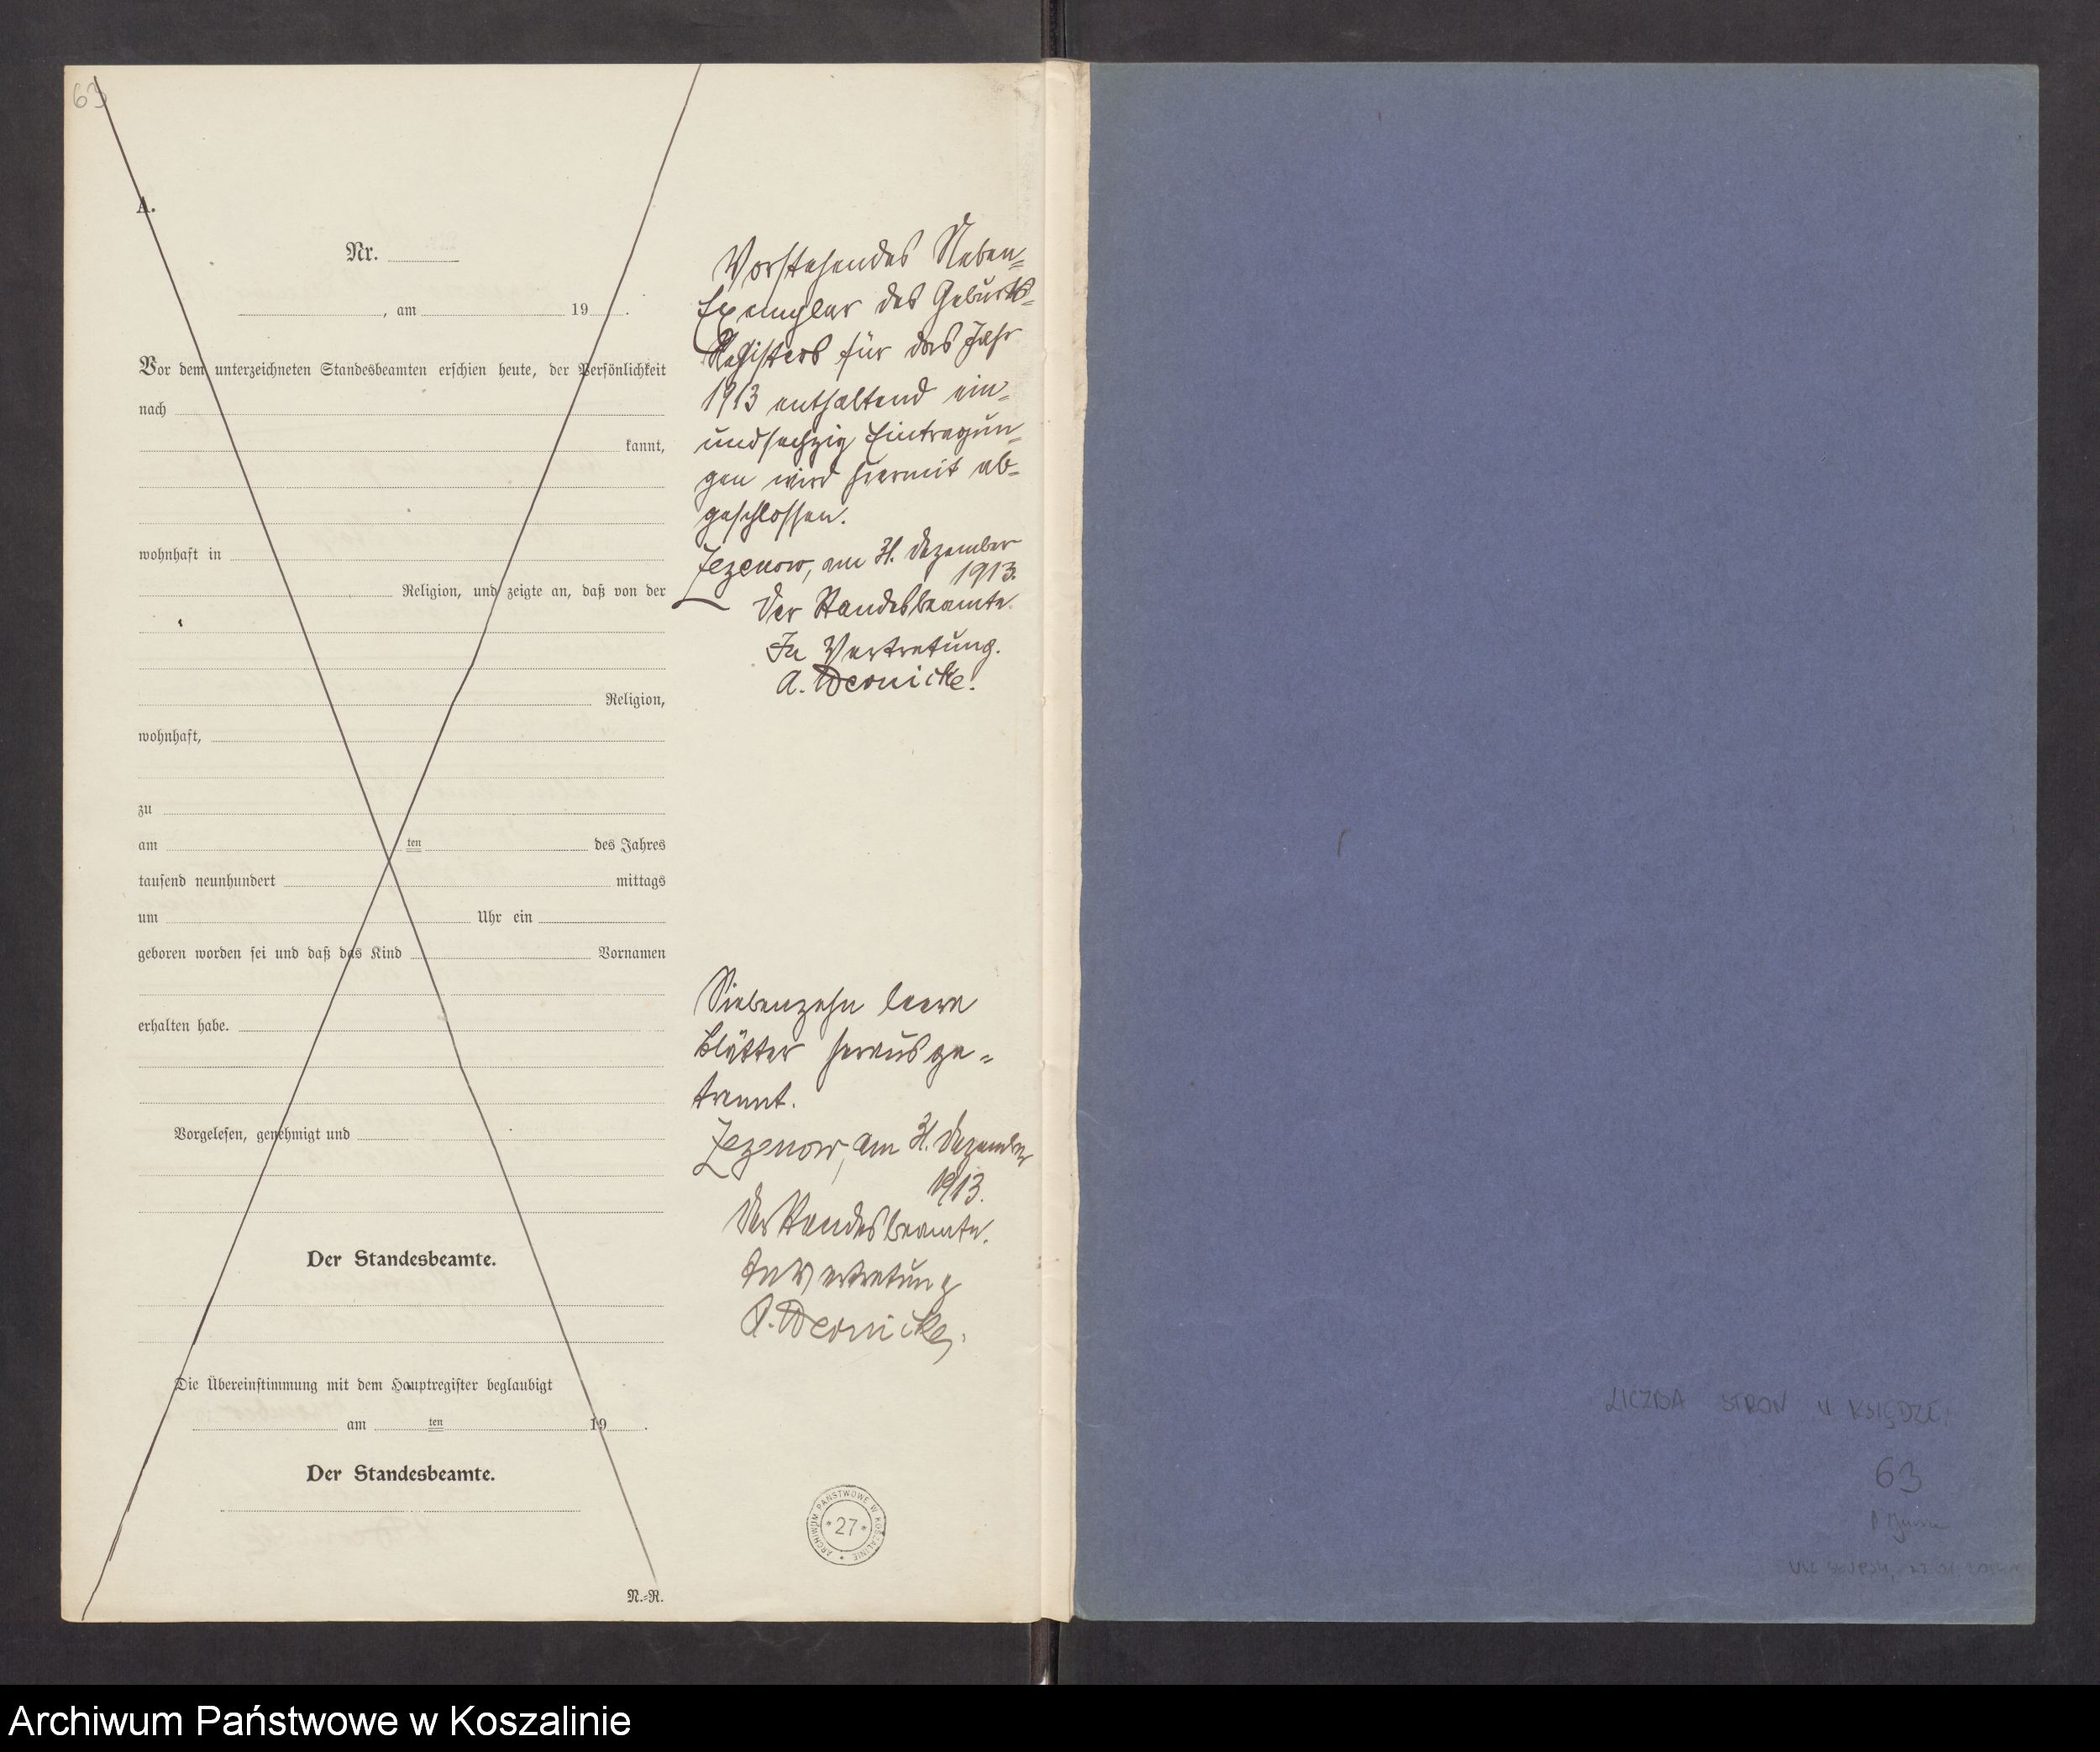 63
A.
Nr.
, am 19 .
Vor dem unterzeichneten Standesbeamten erschien heute, der Persönlichkeit
nach
kannt,
wohnhaft in
Religion, und zeigte an, daß von der
Religion,
wohnhaft,
zu
am ten des Jahres
tausend neunhundert mittags
um Uhr ein
geboren worden sei und daß das Kind Vornamen
erhalten habe.
Vorgelesen, genehmigt und
Der Standesbeamte.
Die Übereinstimmung mit dem Hauptregister beglaubigt
am ten 19 .
Der Standesbeamte.
N.=R.
Vorstehendes Neben=
Exemplar des Geburts=
Registers für das Jahr
1913 enthaltend ein=
undsechzig Eintragun=
gen wird hiermit ab=
geschlossen.
Jezenow, am 31. Dezember
1913.
Der Standesbeamte.
In Vertretung.
A. Wernicke.
Siebenzehn leere
Blätter herausge=
trennt.
Jezenow, am 31. Dezember
1913.
Der Standesbeamte.
In Vertretung
A. Wernicke.
ARCHIWUM PAŃSTWOWE W KOSZALINIE
*27*
LICZBA STRON W KSIĘDZE:
63
Archiwum Państwowe w Koszalinie